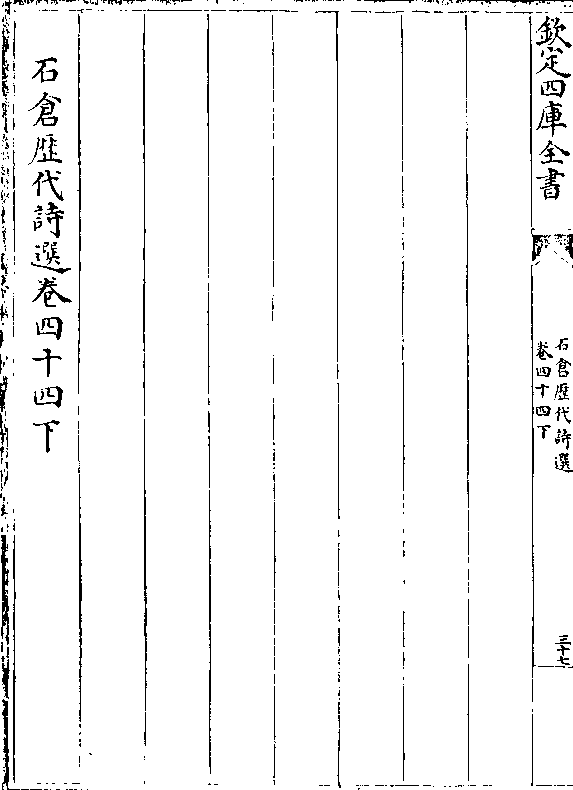 欽定四庫全書
石倉歷代詩選
卷四十四下
三十七
石倉歷代詩選卷四十四下